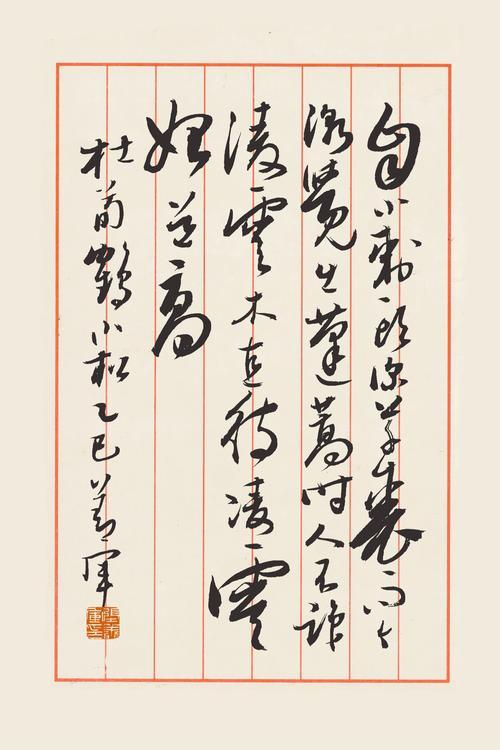 自小刺頭深草裏而今
漸覺出蓬蒿時人不識
凌雲木直待凌雲
始道高
杜荀鶴小松乙巳軍